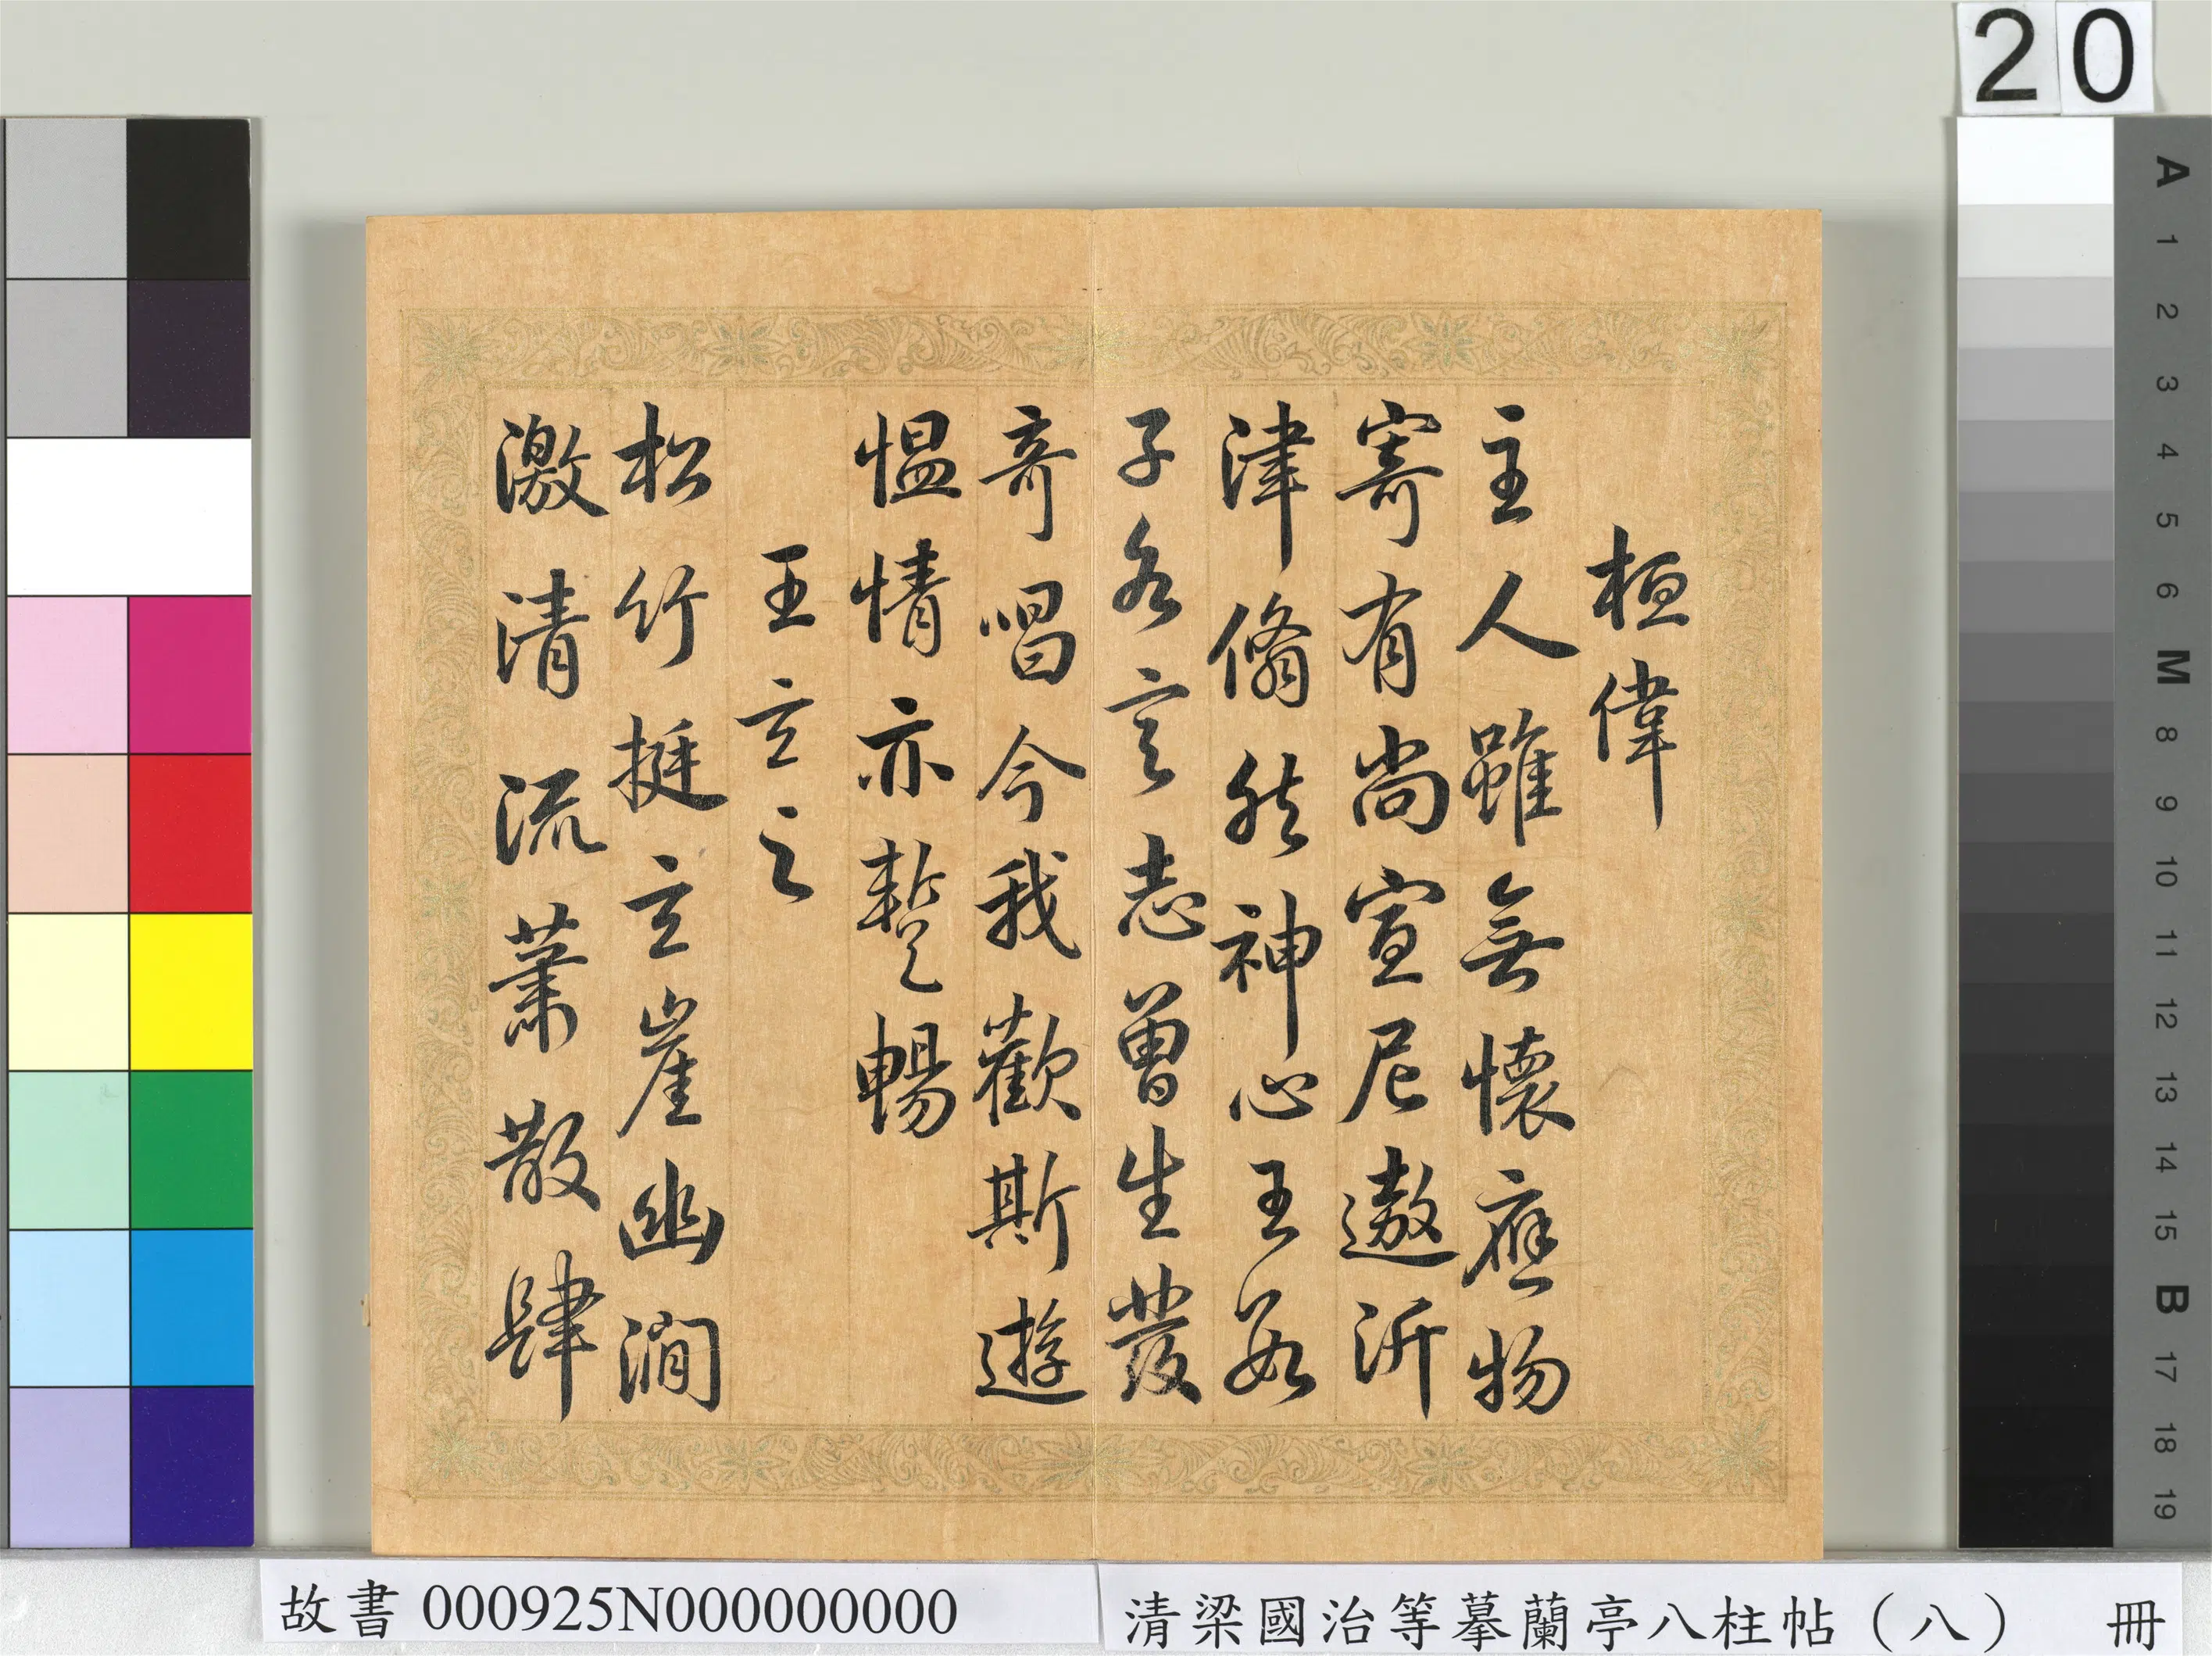 20
桓偉
主人雖無懷應物
寄有尚宣尼遨沂
津翛然神心王數
子各言志曾生發
奇唱今我歡斯遊
愠情亦蹔暢
王玄之
松竹挺玄崖幽澗
激清流蕭散肆
A 1 2 3 4 5 6 M 8 9 10 11 12 13 14 15 B 17 18 19
故書 000925N000000000
清梁國治等摹蘭亭八柱帖（八） 冊